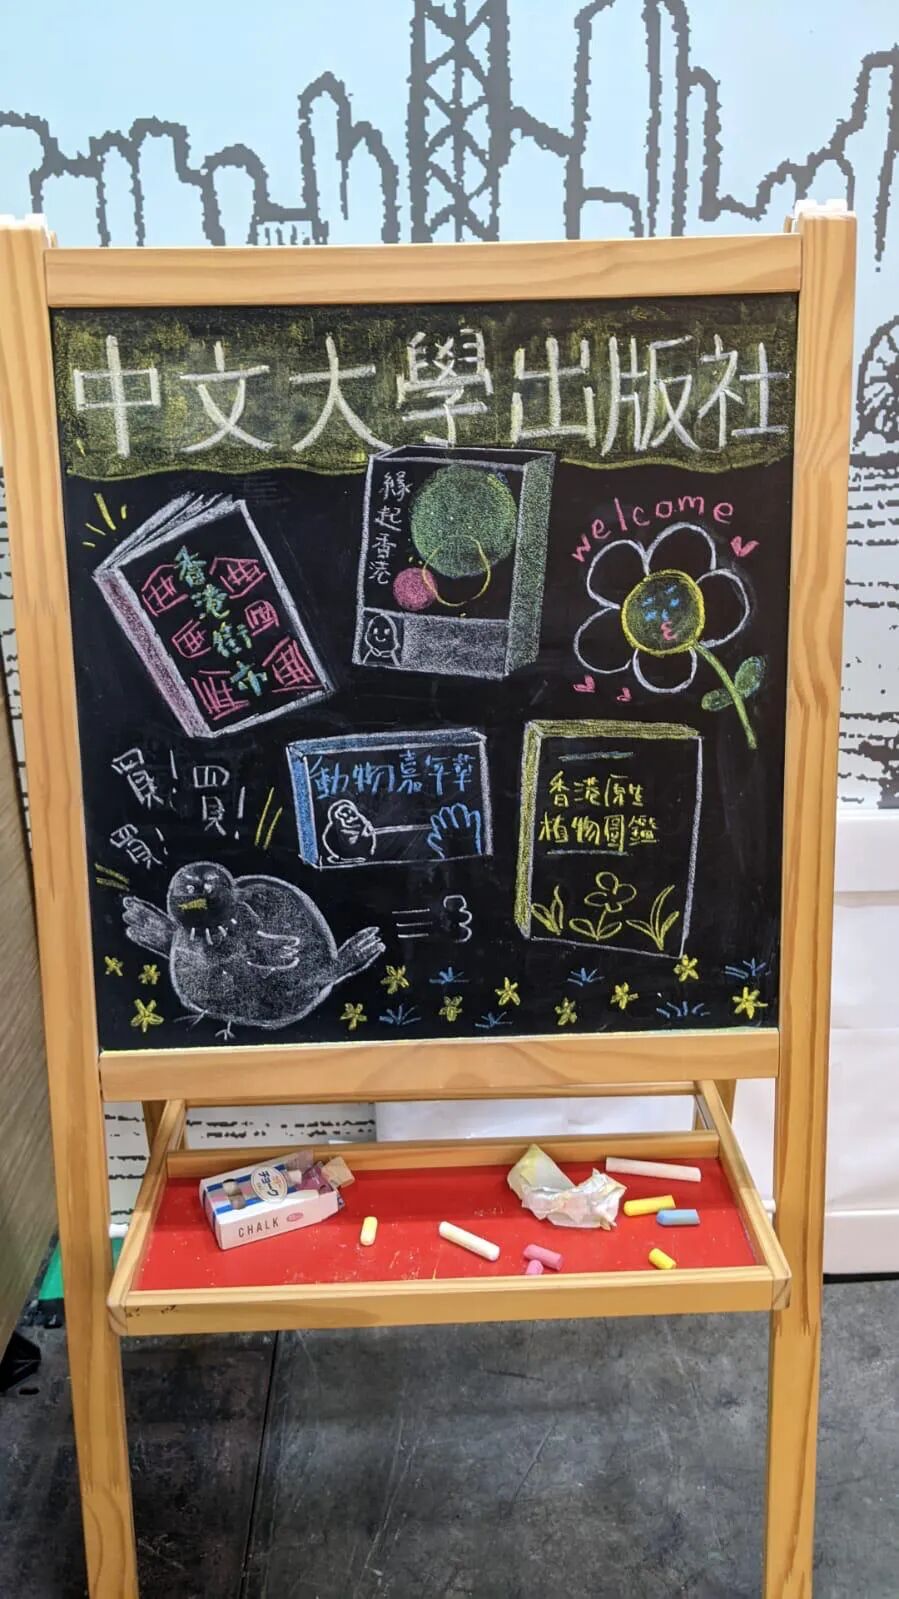 中文大學出版社
緣起香港
welcome
香港街市
買!
買!
買!
動物嘉年華
香港原生
植物圖鑑
チョーク
CHALK